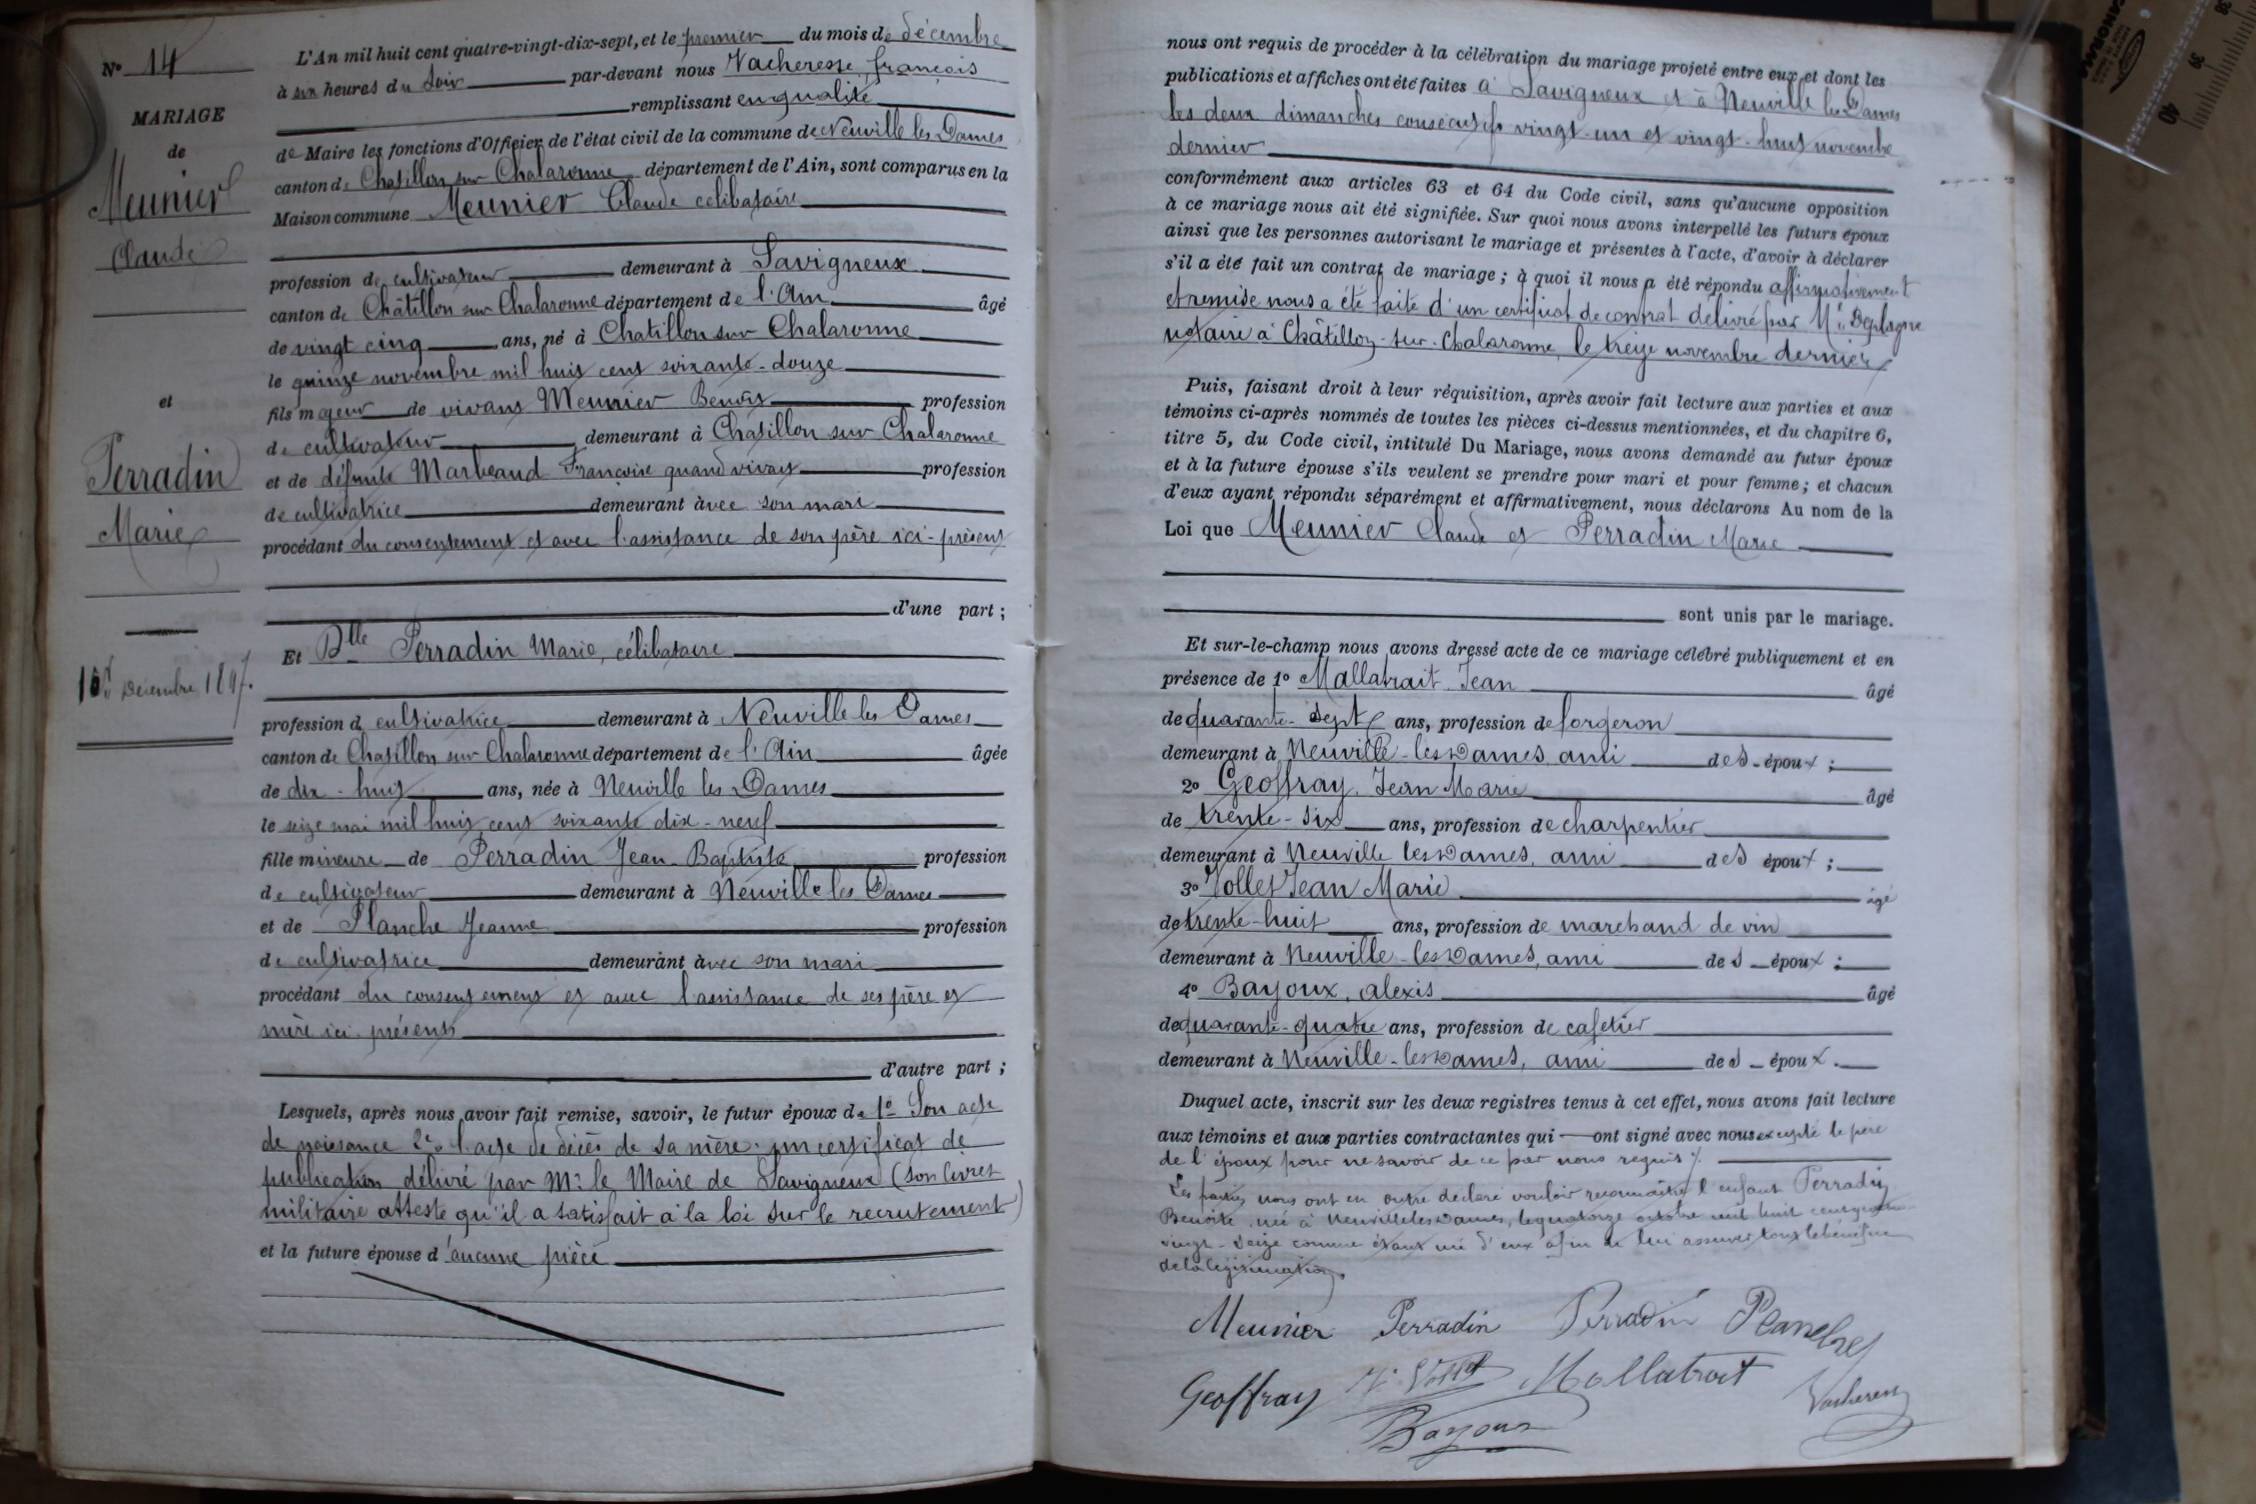 Nº 14
MARIAGE
de
Meunier
Claude
et
Perradin
Marie
1er Décembre 1897.
L'An mil huit cent quatre-vingt-dix-sept, et le premier du mois de décembre
à six heures du soir par-devant nous Vacheresse françois
remplissant en qualité
de Maire les fonctions d'Officier de l'état civil de la commune de Neuville les Dames
canton de Chatillon sur Chalaronne département de l'Ain, sont comparus en la
Maison commune Meunier Claude célibataire
profession de cultivateur demeurant à Savigneux
canton de Châtillon sur Chalaronne département de l'Ain âgé
de vingt cinq ans, né à Chatillon sur Chalaronne
le quinze novembre mil huit cent soixante-douze
fils majeur de vivant Meunier Benoit profession
de cultivateur demeurant à Chatillon sur Chalaronne
et de défunte Marbeaud Françoise quand vivait profession
de cultivatrice demeurant àvec son mari
procédant du consentement et avec l'assistance de son père ici-présent
d'une part ;
Et Dlle Perradin Marie, célibataire
profession de cultivatrice demeurant à Neuville les Dames
canton de Chatillon sur Chalaronne département de l'Ain âgée
de dix-huit ans, née à Neuville les Dames
le seize mai mil huit cent soixante dix-neuf
fille mineure de Perradin Jean-Baptiste profession
de cultivateur demeurant à Neuville les Dames
et de Planche Jeanne profession
de cultivatrice demeurant àvec son mari
procédant du consentement et avec l'assistance de ses père et
mère ici présents
d'autre part ;
Lesquels, après nous avoir fait remise, savoir, le futur époux de 1º Son acte
de naissance 2º l'acte de décès de sa mère. un certificat de
publication délivré par Mr le Maire de Savigneux (son livret
militaire atteste qu'il a satisfait à la loi sur le recrutement)
et la future épouse d'aucune pièce
nous ont requis de procéder à la célébration du mariage projeté entre eux et dont les
publications et affiches ont été faites à Savigneux et à Neuville les Dames
les deux dimanches consécutifs vingt-un et vingt-huit novembre
dernier
conformément aux articles 63 et 64 du Code civil, sans qu'aucune opposition
à ce mariage nous ait été signifiée. Sur quoi nous avons interpellé les futurs époux
ainsi que les personnes autorisant le mariage et présentes à l'acte, d'avoir à déclarer
s'il a été fait un contrat de mariage ; à quoi il nous a été répondu affirmativement
et remise nous a été faite d'un certificat de contrat délivré par Me
notaire à Châtillon-sur-Chalaronne, le treize novembre dernier
Puis, faisant droit à leur réquisition, après avoir fait lecture aux parties et aux
témoins ci-après nommés de toutes les pièces ci-dessus mentionnées, et du chapitre 6,
titre 5, du Code civil, intitulé Du Mariage, nous avons demandé au futur époux
et à la future épouse s'ils veulent se prendre pour mari et pour femme ; et chacun
d'eux ayant répondu séparément et affirmativement, nous déclarons Au nom de la
Loi que Meunier Claude et Perradin Marie
sont unis par le mariage.
Et sur-le-champ nous avons dressé acte de ce mariage célébré publiquement et en
présence de 1º Mallatrait Jean âgé
de quarante-sept ans, profession de forgeron
demeurant à Neuville-les-Dames, ami des époux ;
2º Geoffray, Jean Marie âgé
de trente-six ans, profession de charpentier
demeurant à Neuville les Dames, ami des époux ;
3º Vollet Jean Marie âgé
de trente-huit ans, profession de marchand de vin
demeurant à Neuville-les-Dames, ami des époux ;
4º Bayoux, alexis âgé
de quarante-quatre ans, profession de cafetier
demeurant à Neuville-les-Dames, ami des époux.
Duquel acte, inscrit sur les deux registres tenus à cet effet, nous avons fait lecture
aux témoins et aux parties contractantes qui ont signé avec nous excepté le père
de l'époux pour ne savoir de ce par nous requis
Les parties nous ont en outre déclaré vouloir reconnaître l'enfant Perradin
Benoite, née à Neuville les Dames, le quatorze octobre mil huit cent quatre
vingt-seize comme étant née d'eux afin de lui assurer tout le bénéfice
de la légitimation.
Meunier Perradin Perradin Planche
Geoffray Vollet Mallatrait Vacheresse
Bayoux